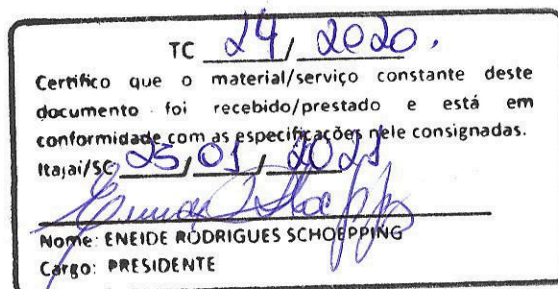 TC 24/2020.
Certifico que o material/serviço constante deste
documento foi recebido/prestado e está em
conformidade com as especificações nele consignadas.
Itajaí/SC 25/01/2021
Nome: ENEIDE RODRIGUES SCHOEPPING
Cargo: PRESIDENTE